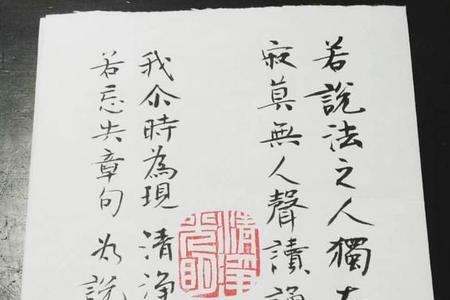 若說法之人獨在
寂莫無人聲讀誦
我尒時為現清淨
若忘失章句為說
清淨光明